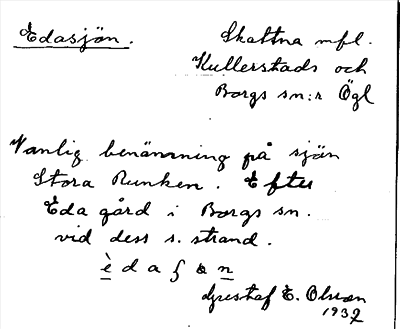 Edasjön.
Skattna mfl.
Kullerstads och
Borgs sn:r Ögl
Vanlig benämning på sjön
Stora Runken. Efter
Eda gård i Borgs sn.
vid dess s. strand.
è d a ʃ ɷ n
Gustaf E. Olsson
1937